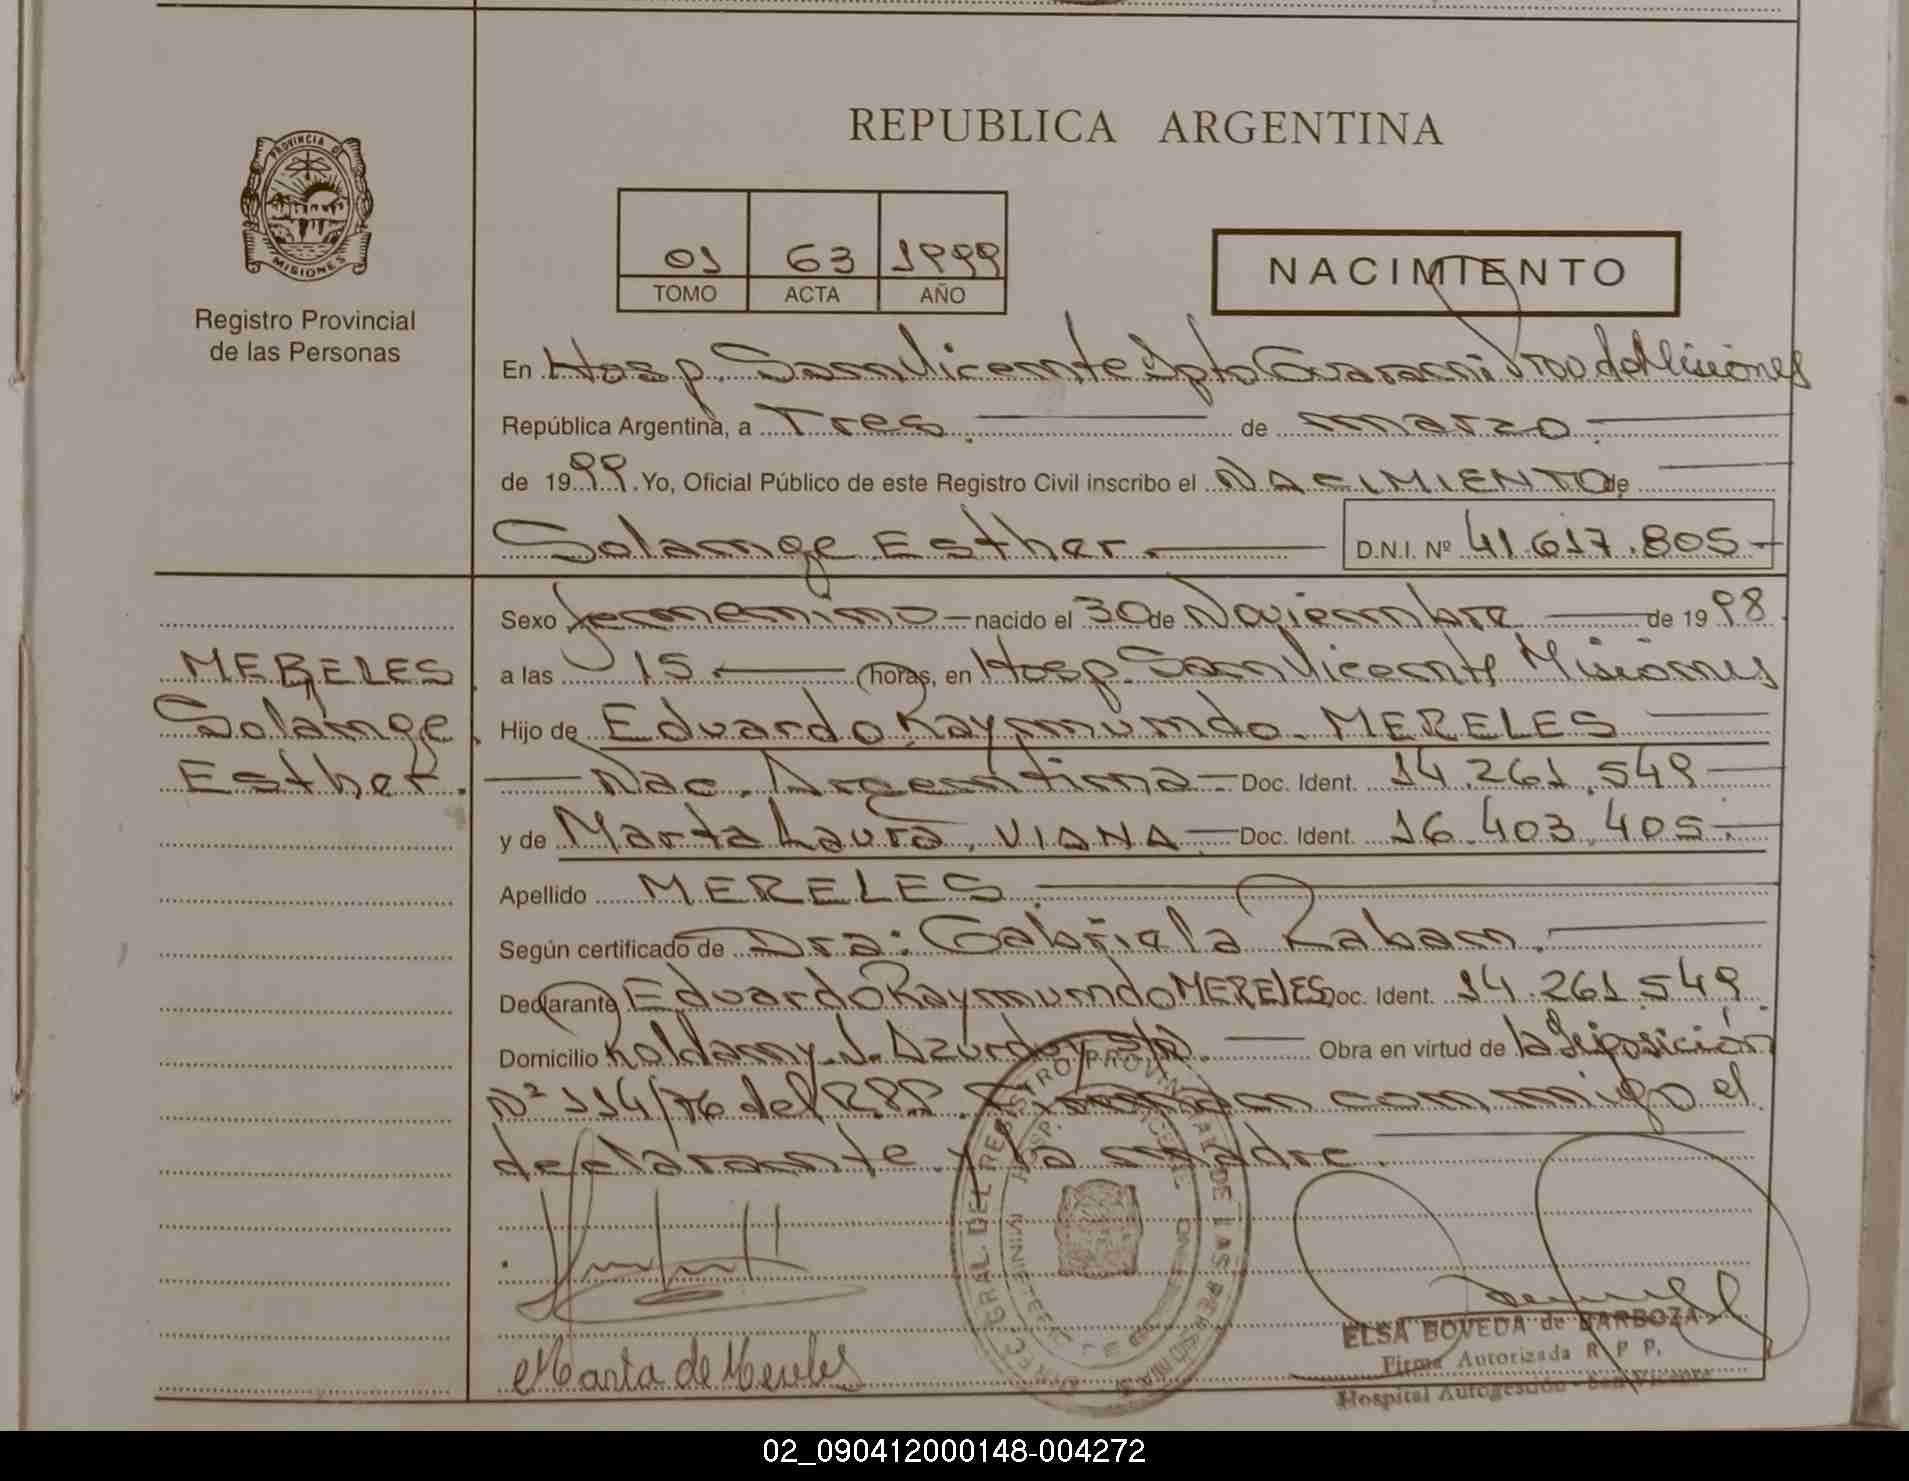 REPUBLICA ARGENTINA
PROVINCIA DE
MISIONES
Registro Provincial
de las Personas
01 63 1999
TOMO ACTA AÑO
NACIMIENTO
En Hosp. San Vicente Dpto Guarani Prov de Misiones
República Argentina, a Tres. de marzo.
de 1999. Yo, Oficial Público de este Registro Civil inscribo el NACIMIENTO de
Solange Esther. D.N.I. Nº 41.617.805.-
Sexo femenino - nacido el 30 de Noviembre de 1998
MERELES
Solange
Esther.
a las 15 horas, en Hosp. San Vicente Misiones
Hijo de Eduardo Raymundo. MERELES
Nac. Argentina - Doc. Ident. 14.261.549
y de Marta Laura. VIANA - Doc. Ident. 16.403.405.-
Apellido MERELES.
Según certificado de Dra: Gabriela Raban.
Declarante Eduardo Raymundo MERELES Doc. Ident. 14.261.549
Domicilio J. Azurduy S/N. Obra en virtud de la disposición
Nº 114/76 del R.P.P. Firman conmigo el
declarante y la madre.
Marta de Mereles
ELSA BOVEDA de BARBOZA
Firma Autorizada R P P.
Hospital Autogestión - San Vicente
02_090412000148-004272